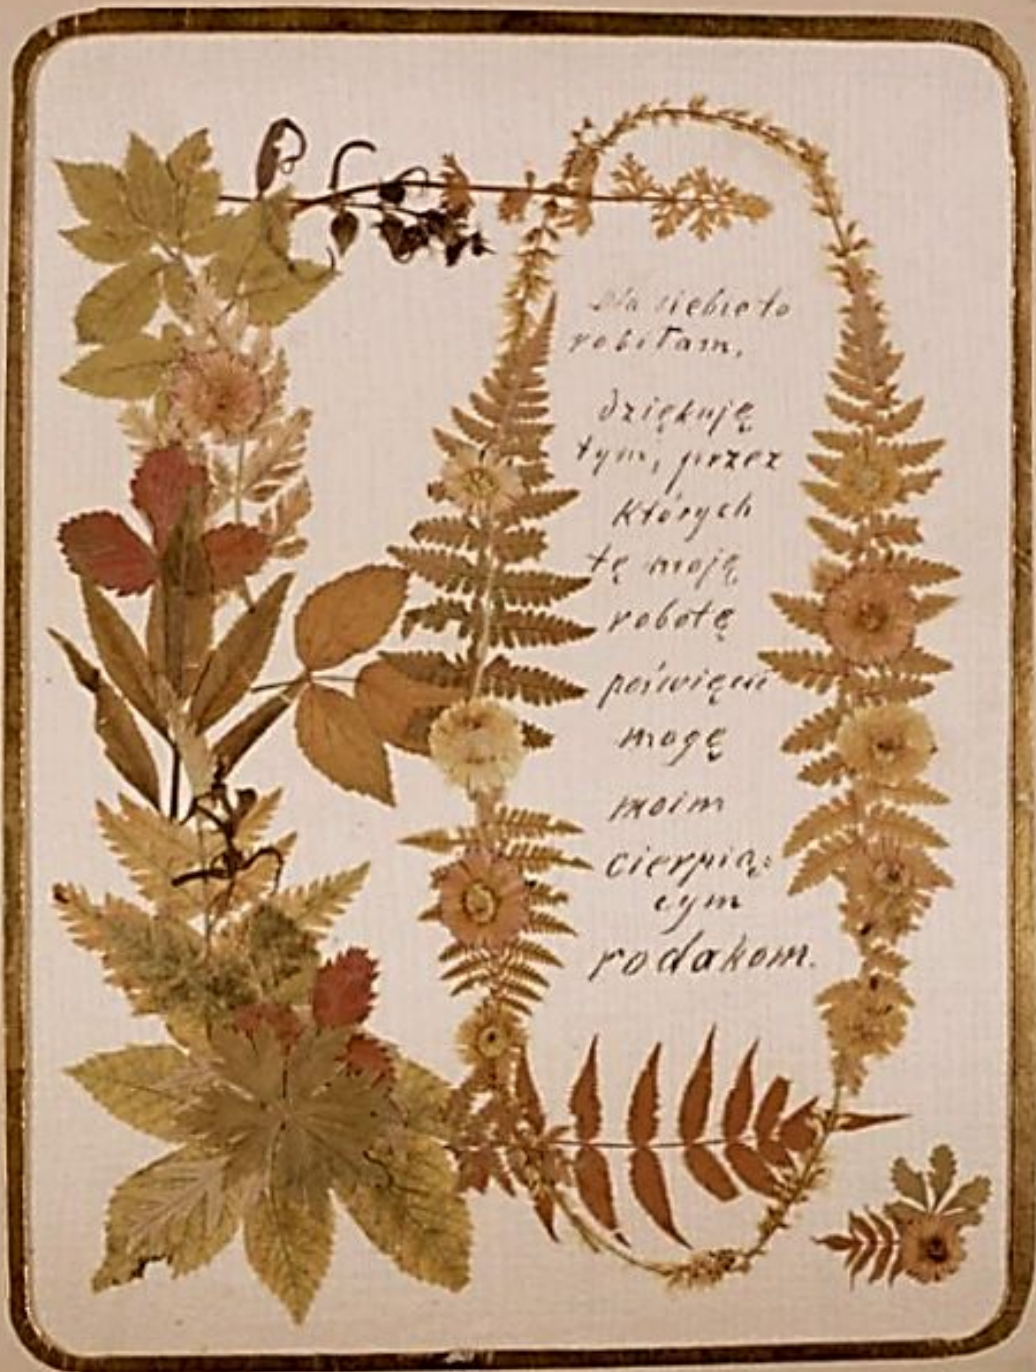 Dla siebie to
robiłam,
dziękuję
tym, przez
których
tę moją
robotę
poświęcić
mogę
moim
cierpią:
cym
rodakom.